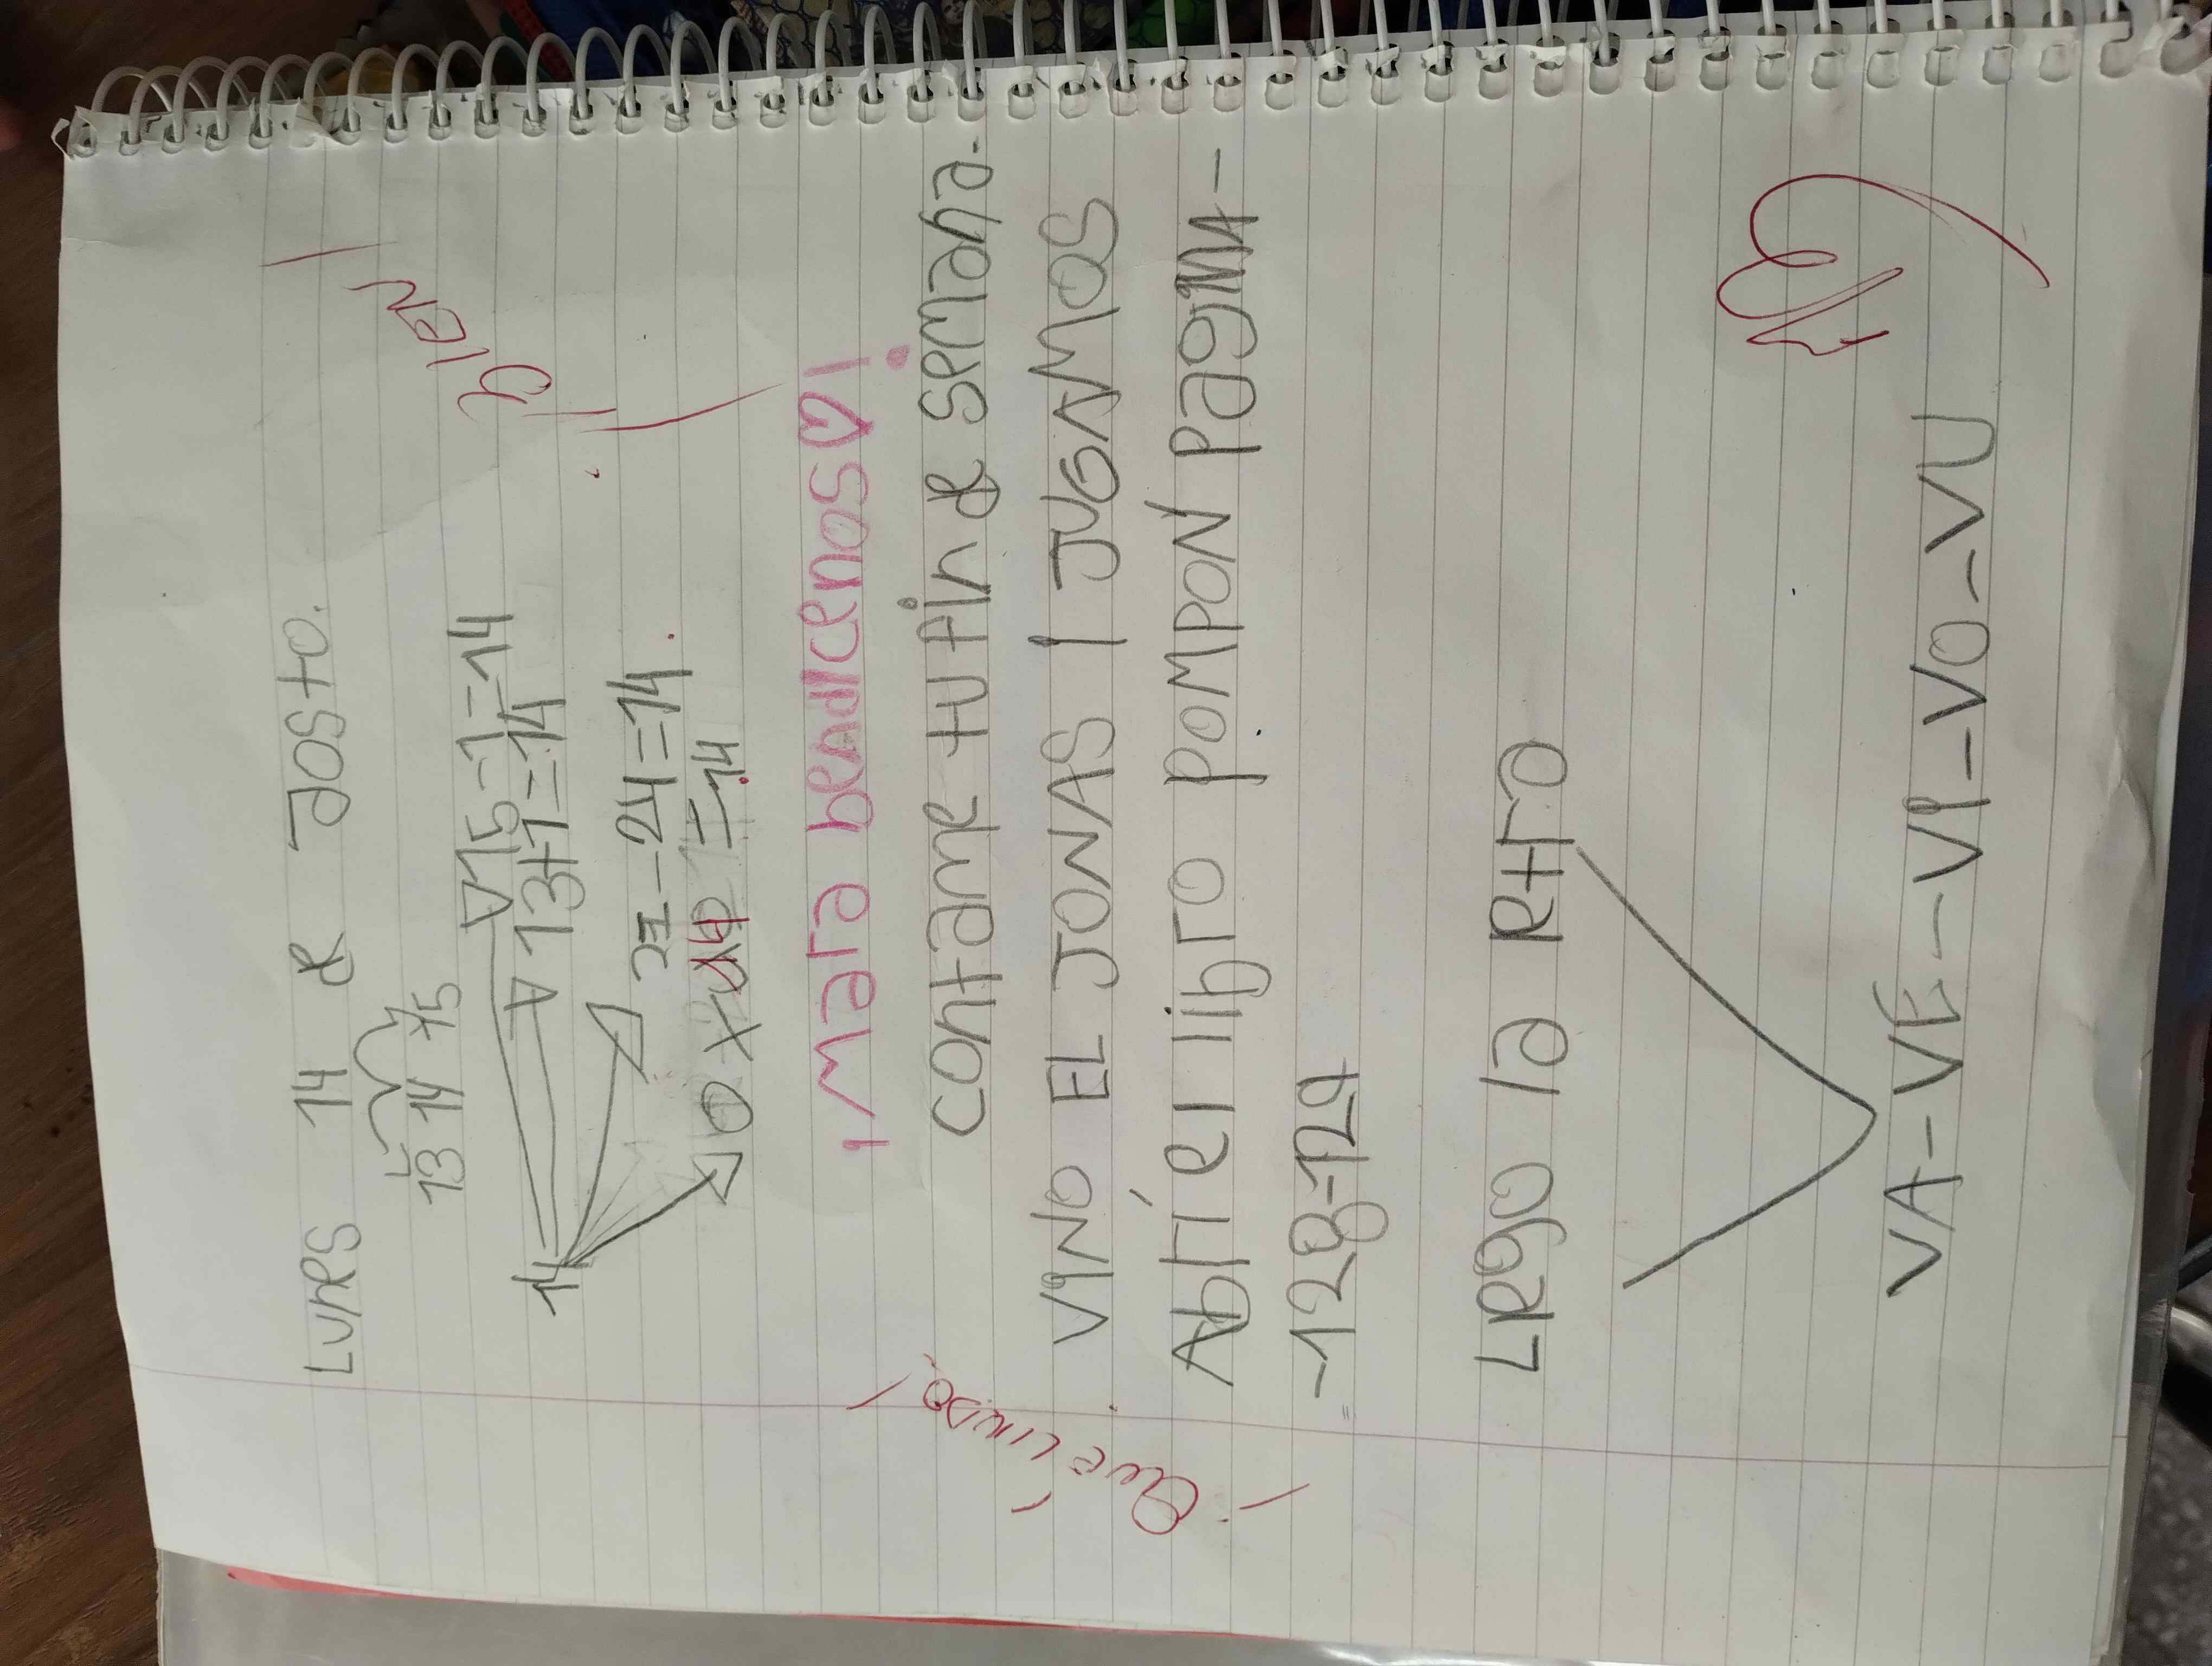 Lunes 14 de agosto.
¡BIEN!
13 14 15
15-1=14
14
13+1=14
-24=14
=14
¡Mara bendicenos♡!
contame tu fin de semana.
VINO EL JONAS I JUGAMOS
¡QUÉ LINDO!
Abrí el libro pompon pagina-
-128-129
Llego la letra
VA-VE-VI-VO-VU